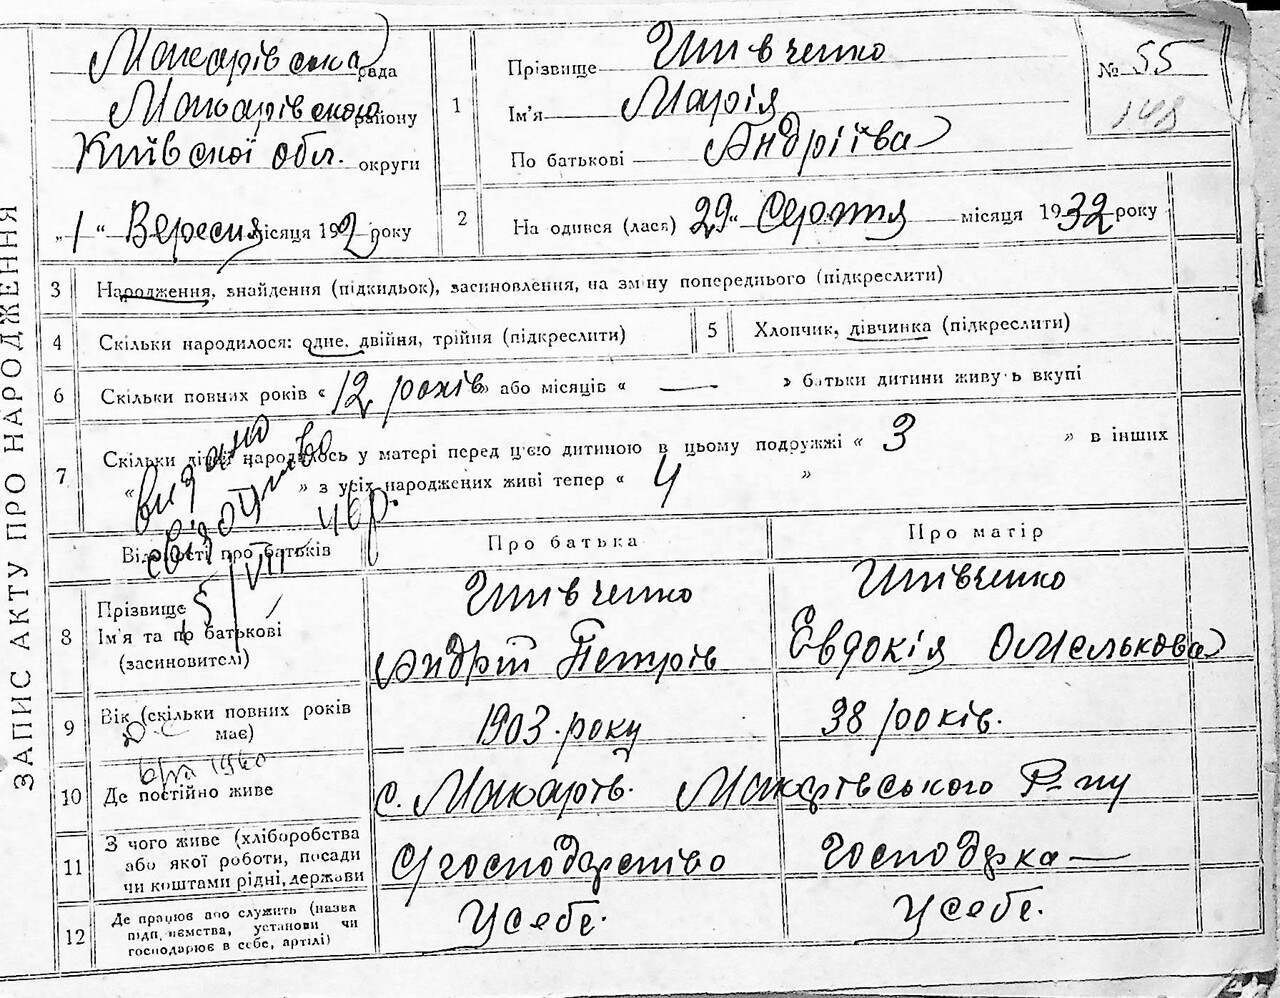 ЗАПИС АКТУ ПРО НАРОДЖЕННЯ
Макарівська рада
Макарівського району
Київської обл. округи
„1“ Вересня місяця 1932 року
1
Прізвище Шевченко
Ім'я Марія
По батькові Андріївна
№ 55
148
2
Народився (лася) 29 „ Серпня місяця 1932 року
3 Народження, знайдення (підкидьок), засиновлення, на зміну попереднього (підкреслити)
4 Скільки народилося: одне, двійня, трійня (підкреслити)
5 Хлопчик, дівчинка (підкреслити)
6 Скільки повних років « 12 років » або місяців « — » батьки дитини живуть вкупі
7 Скільки дітей народилось у матері перед цією дитиною в цьому подружжі « 3 » в інших
« » з усіх народжених живі тепер « 4 »
видано
свідоцтво
1/VII 46р.
Відомості про батьків
Про батька
Про матір
8
Прізвище
Ім'я та по батькові
(засиновителі)
Шевченко
Андрій Петрів
Шевченко
Євдокія Омелькова
9 Вік (скільки повних років має)
1903 року
38 років.
10 Де постійно живе
с. Макарів. Макарівського Р-ну
11 З чого живе (хліборобства
або якої роботи, посади
чи коштами рідні, держави
С/господарство
Господарка —
12 Де працює або служить (назва
підприємства, установи чи
господарює в себе, артілі)
У себе.
У себе.